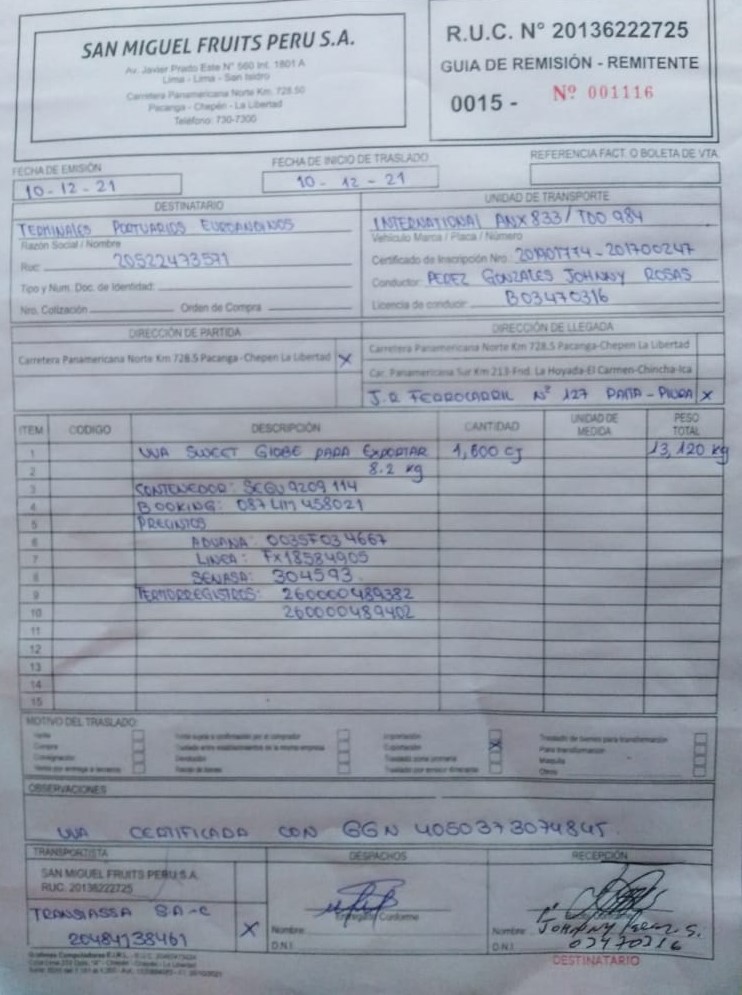 SAN MIGUEL FRUITS PERU S.A.
Av. Javier Prado Este N° 560 Int. 1801 A
Lima - Lima - San Isidro
Carretera Panamericana Norte Km. 728.50
Pacanga - Chepén - La Libertad
Teléfono: 730-7300
R.U.C. N° 20136222725
GUIA DE REMISIÓN - REMITENTE
0015 - Nº 001116
FECHA DE EMISIÓN
10-12-21
FECHA DE INICIO DE TRASLADO
10 - 12 - 21
REFERENCIA FACT. O BOLETA DE VTA.
DESTINATARIO
TERMINALES PORTUARIOS EUROANDINOS
Razón Social / Nombre
Ruc: 20522473571
Tipo y Num. Doc. de Identidad:
Nro. Cotización Orden de Compra
UNIDAD DE TRANSPORTE
INTERNATIONAL ANX 833/ TDO 984
Vehículo Marca / Placa / Número
Certificado de Inscripción Nro.: - 201700247
Conductor: PEREZ GONZALES JOHNNY ROSAS
Licencia de conducir: B03470316
DIRECCIÓN DE PARTIDA
Carretera Panamericana Norte Km 728.5 Pacanga-Chepen La Libertad X
DIRECCIÓN DE LLEGADA
Carretera Panamericana Norte Km 728.5 Pacanga-Chepen La Libertad
Car. Panamericana Sur Km 213-Fnd. La Hoyada-El Carmen-Chincha-Ica
J.R FERROCARRIL Nº 127 PAITA - PIURA X
ITEM CODIGO DESCRIPCIÓN CANTIDAD UNIDAD DE MEDIDA PESO TOTAL
1 UVA SWEET GLOBE PARA EXPORTAR 1,600 CJ 13,120 kg
2 8.2 kg
3 CONTENEDOR: SEGU 9209 114
4 BOOKING: 087 LIM 458021
5 PRECINTOS
6 ADUANA: 0035F034667
7 LINEA: FX18584905
8 SENASA: 304593
9 TERMORREGISTROS: 260000489382
10 260000489402
11
12
13
14
15
MOTIVO DEL TRASLADO:
Venta
Compra
Consignación
Venta sujeta a confirmación por el comprador
Traslado entre establecimientos de la misma empresa
Devolución
Importación
Exportación X
Traslado zona primaria
Traslado por emisor itinerante
Traslado de bienes para transformación
Para transformación
Maquila
Otros
OBSERVACIONES
UVA CERTIFICADA CON GGN 4050373074845.
TRANSPORTISTA
SAN MIGUEL FRUITS PERU S.A.
RUC. 20136222725
TRANSIASSA SA-C X
20484138461
DESPACHOS
Entregué Conforme
Nombre:
D.N.I.
RECEPCIÓN
Nombre: JOHNNY Perez S.
D.N.I. 03470316
DESTINATARIO